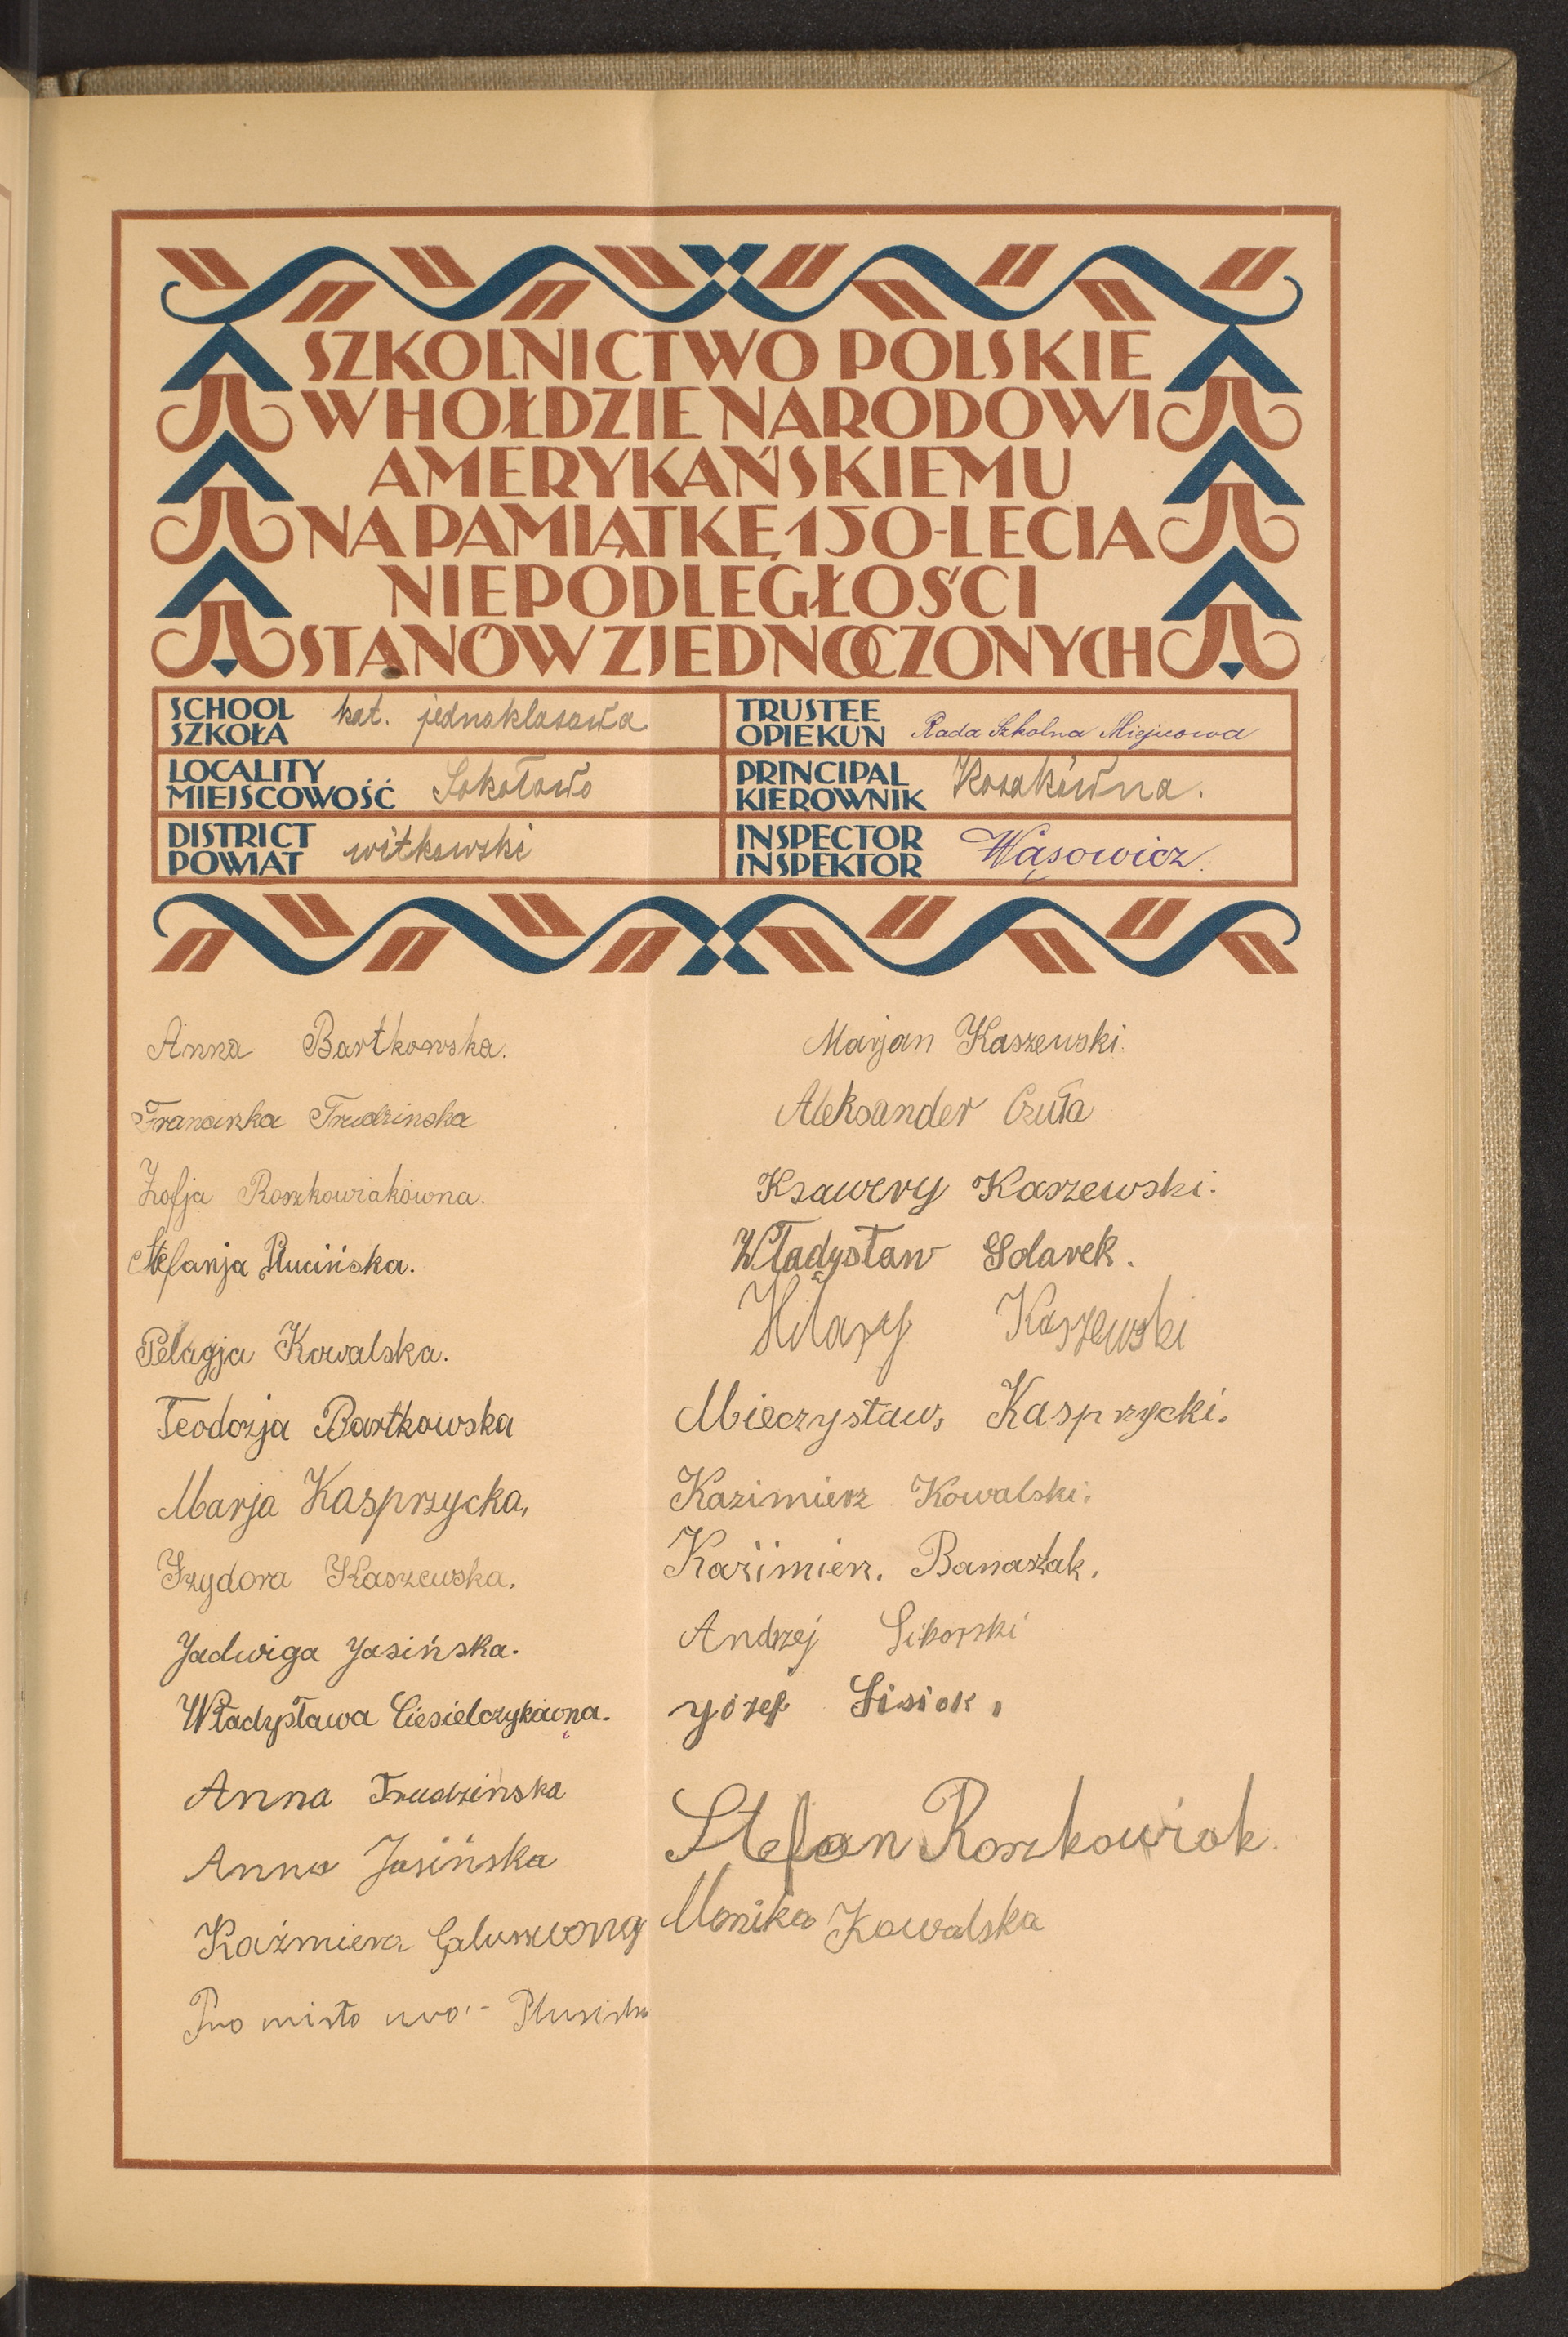 SZKOLNICTWO POLSKIE
W HOŁDZIE NARODOWI
AMERYKAŃSKIEMU
NA PAMIĄTKĘ 150-LECIA
NIEPODLEGŁOŚCI
STANÓW ZJEDNOCZONYCH
SCHOOL
SZKOŁA kat. jednoklasowa
TRUSTEE
OPIEKUN Rada Szkolna Miejscowa
LOCALITY
MIEJSCOWOŚĆ Sokołowo
PRINCIPAL
KIEROWNIK Kozakówna.
DISTRICT
POWIAT witkowski
INSPECTOR
INSPEKTOR Wąsowicz.
Anna Bartkowska.
Franciszka Trudzinska
Zofja Roszkowiakówna.
Stefanja Plucińska.
Pelagja Kowalska.
Teodozja Bartkowska
Marja Kasprzycka,
Izydora Kaszewska.
Jadwiga Jasińska.
Władysława Ciesielczykówna.
Anna Trudzińska
Anna Jasińska
Kaźmiera
Marjan Kaszewski.
Aleksander Czuła
Ksawery Kaszewski.
Władysław Sdarek.
Hilary Kaszewski
Mieczysław, Kasprzycki.
Kazimierz Kowalski.
Kazimierz. Banaszak.
Andrzej Sikorski
Józef Sisiok.
Stefan Roszkowiak.
Monika Kowalska